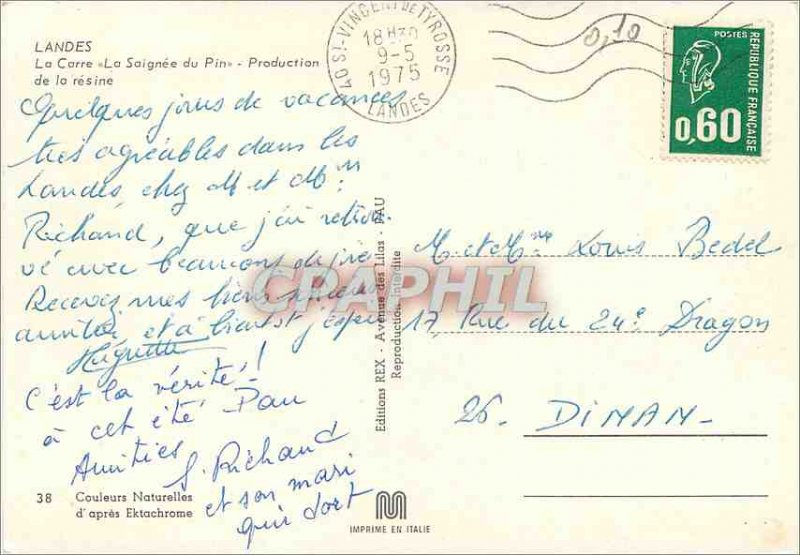 LANDES
La Carre «La Saignée du Pin» - Production
de la résine
40 ST-VINCENT DE TYROSSE
18H30
9-5
1975
LANDES
0,10
POSTES
REPUBLIQUE FRANÇAISE
0,60
Quelques jours de vacances
très agréables dans les
Landes, chez M et Mme
Richand, que j'ai retrou-
vé avec beaucoup de joie.
Recevez mes biens
amitiés et à bientôt j'espère
Huguette
C'est la vérité !
à cet été Pau
Amitiés
G. Richand
et son mari
qui dort
Editions REX - Avenue des Lilas - PAU
Reproduction interdite
M et Mme Louis Bedel
17, Rue du 24e Dragon
26. DINAN-
CPAPHIL
38 Couleurs Naturelles
d'après Ektachrome
IMPRIME EN ITALIE